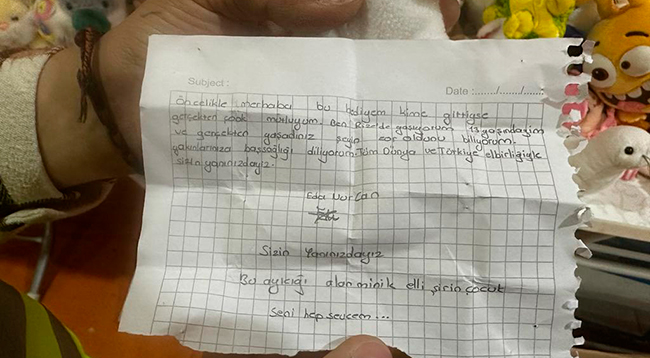 Subject :
Date : ....../....../......
öncelikle merhaba bu hediyem kime gittiyse
gerçekten çook mutluyum. Ben Rize'de yaşıyorum 13 yaşındayım
ve gerçekten yaşadınız şeyin zor oldunu biliyorum.
yakınlarınıza başsağlığı diliyorum. Tüm Dünya ve Türkiye elbirliğiyle
sizin yanınızdayız.
Eda Nur Can
Sizin Yanınızdayız
Bu ayıcığı alan minik elli şirin çocuk
Seni hep sevicem...